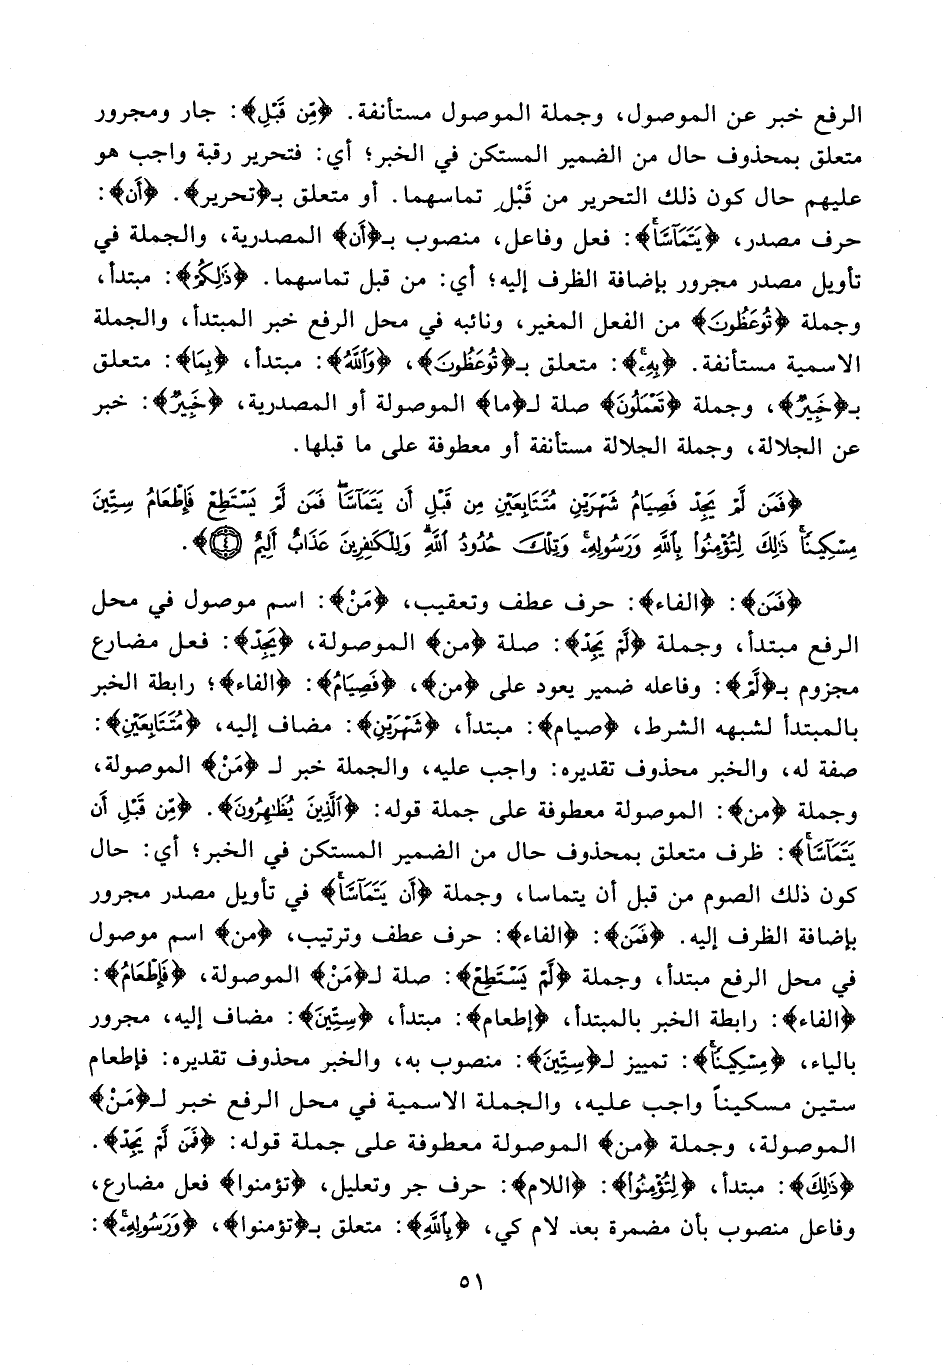 الرفع خبر عن الموصول، وجملة الموصول مستأنفة. ﴿مِّن قَبْلِ﴾: جار ومجرور
متعلق بمحذوف حال من الضمير المستكن في الخبر؛ أي: فتحرير رقبة واجب هو
عليهم حال كون ذلك التحرير من قَبْلِ تماسهما. أو متعلق بـ﴿تحرير﴾. ﴿أَن﴾:
حرف مصدر، ﴿يَتَمَآسَّا﴾: فعل وفاعل، منصوب بـ﴿أَن﴾ المصدرية، والجملة في
تأويل مصدر مجرور بإضافة الظرف إليه؛ أي: من قبل تماسهما. ﴿ذَٰلِكُمْ﴾: مبتدأ،
وجملة ﴿تُوعَظُونَ﴾ من الفعل المغير، ونائبه في محل الرفع خبر المبتدأ، والجملة
الاسمية مستأنفة. ﴿بِهِۦ﴾: متعلق بـ﴿تُوعَظُونَ﴾، ﴿وَٱللَّهُ﴾: مبتدأ، ﴿بِمَا﴾: متعلق
بـ﴿خَبِيرٌ﴾، وجملة ﴿تَعْمَلُونَ﴾ صلة لـ﴿ما﴾ الموصولة أو المصدرية، ﴿خَبِيرٌ﴾: خبر
عن الجلالة، وجملة الجلالة مستأنفة أو معطوفة على ما قبلها.
﴿فَمَن لَّمْ يَجِدْ فَصِيَامُ شَهْرَيْنِ مُتَتَابِعَيْنِ مِن قَبْلِ أَن يَتَمَآسَّا فَمَن لَّمْ يَسْتَطِعْ فَإِطْعَامُ سِتِّينَ
مِسْكِينًا ذَٰلِكَ لِتُؤْمِنُوا۟ بِٱللَّهِ وَرَسُولِهِۦ وَتِلْكَ حُدُودُ ٱللَّهِ وَلِلْكَٰفِرِينَ عَذَابٌ أَلِيمٌ ٤﴾.
﴿فَمَن﴾: ﴿الفاء﴾: حرف عطف وتعقيب، ﴿مَنْ﴾: اسم موصول في محل
الرفع مبتدأ، وجملة ﴿لَّمْ يَجِدْ﴾: صلة ﴿من﴾ الموصولة، ﴿يَجِدْ﴾: فعل مضارع
مجزوم بـ﴿لَّمْ﴾: وفاعله ضمير يعود على ﴿من﴾، ﴿فَصِيَامُ﴾: ﴿الفاء﴾؛ رابطة الخبر
بالمبتدأ لشبهه الشرط، ﴿صيام﴾: مبتدأ، ﴿شَهْرَيْنِ﴾: مضاف إليه، ﴿مُتَتَابِعَيْنِ﴾:
صفة له، والخبر محذوف تقديره: واجب عليه، والجملة خبر لـ ﴿مَنْ﴾ الموصولة،
وجملة ﴿من﴾: الموصولة معطوفة على جملة قوله: ﴿ٱلَّذِينَ يُظَٰهِرُونَ﴾. ﴿مِّن قَبْلِ أَن
يَتَمَآسَّا﴾: ظرف متعلق بمحذوف حال من الضمير المستكن في الخبر؛ أي: حال
كون ذلك الصوم من قبل أن يتماسا، وجملة ﴿أَن يَتَمَآسَّا﴾ في تأويل مصدر مجرور
بإضافة الظرف إليه. ﴿فَمَن﴾: ﴿الفاء﴾: حرف عطف وترتيب، ﴿من﴾ اسم موصول
في محل الرفع مبتدأ، وجملة ﴿لَّمْ يَسْتَطِعْ﴾: صلة لـ﴿مَنْ﴾ الموصولة، ﴿فَإِطْعَامُ﴾:
﴿الفاء﴾: رابطة الخبر بالمبتدأ، ﴿إطعام﴾: مبتدأ، ﴿سِتِّينَ﴾: مضاف إليه، مجرور
بالياء، ﴿مِسْكِينًا﴾: تمييز لـ﴿سِتِّينَ﴾: منصوب به، والخبر محذوف تقديره: فإطعام
ستين مسكيناً واجب عليه، والجملة الاسمية في محل الرفع خبر لـ﴿مَنْ﴾
الموصولة، وجملة ﴿من﴾ الموصولة معطوفة على جملة قوله: ﴿فَمَن لَّمْ يَجِدْ﴾.
﴿ذَٰلِكَ﴾: مبتدأ، ﴿لِتُؤْمِنُوا۟﴾: ﴿اللام﴾: حرف جر وتعليل، ﴿تؤمنوا﴾ فعل مضارع،
وفاعل منصوب بأن مضمرة بعد لام كي، ﴿بِٱللَّهِ﴾: متعلق بـ﴿تؤمنوا﴾، ﴿وَرَسُولِهِۦ﴾:
٥١